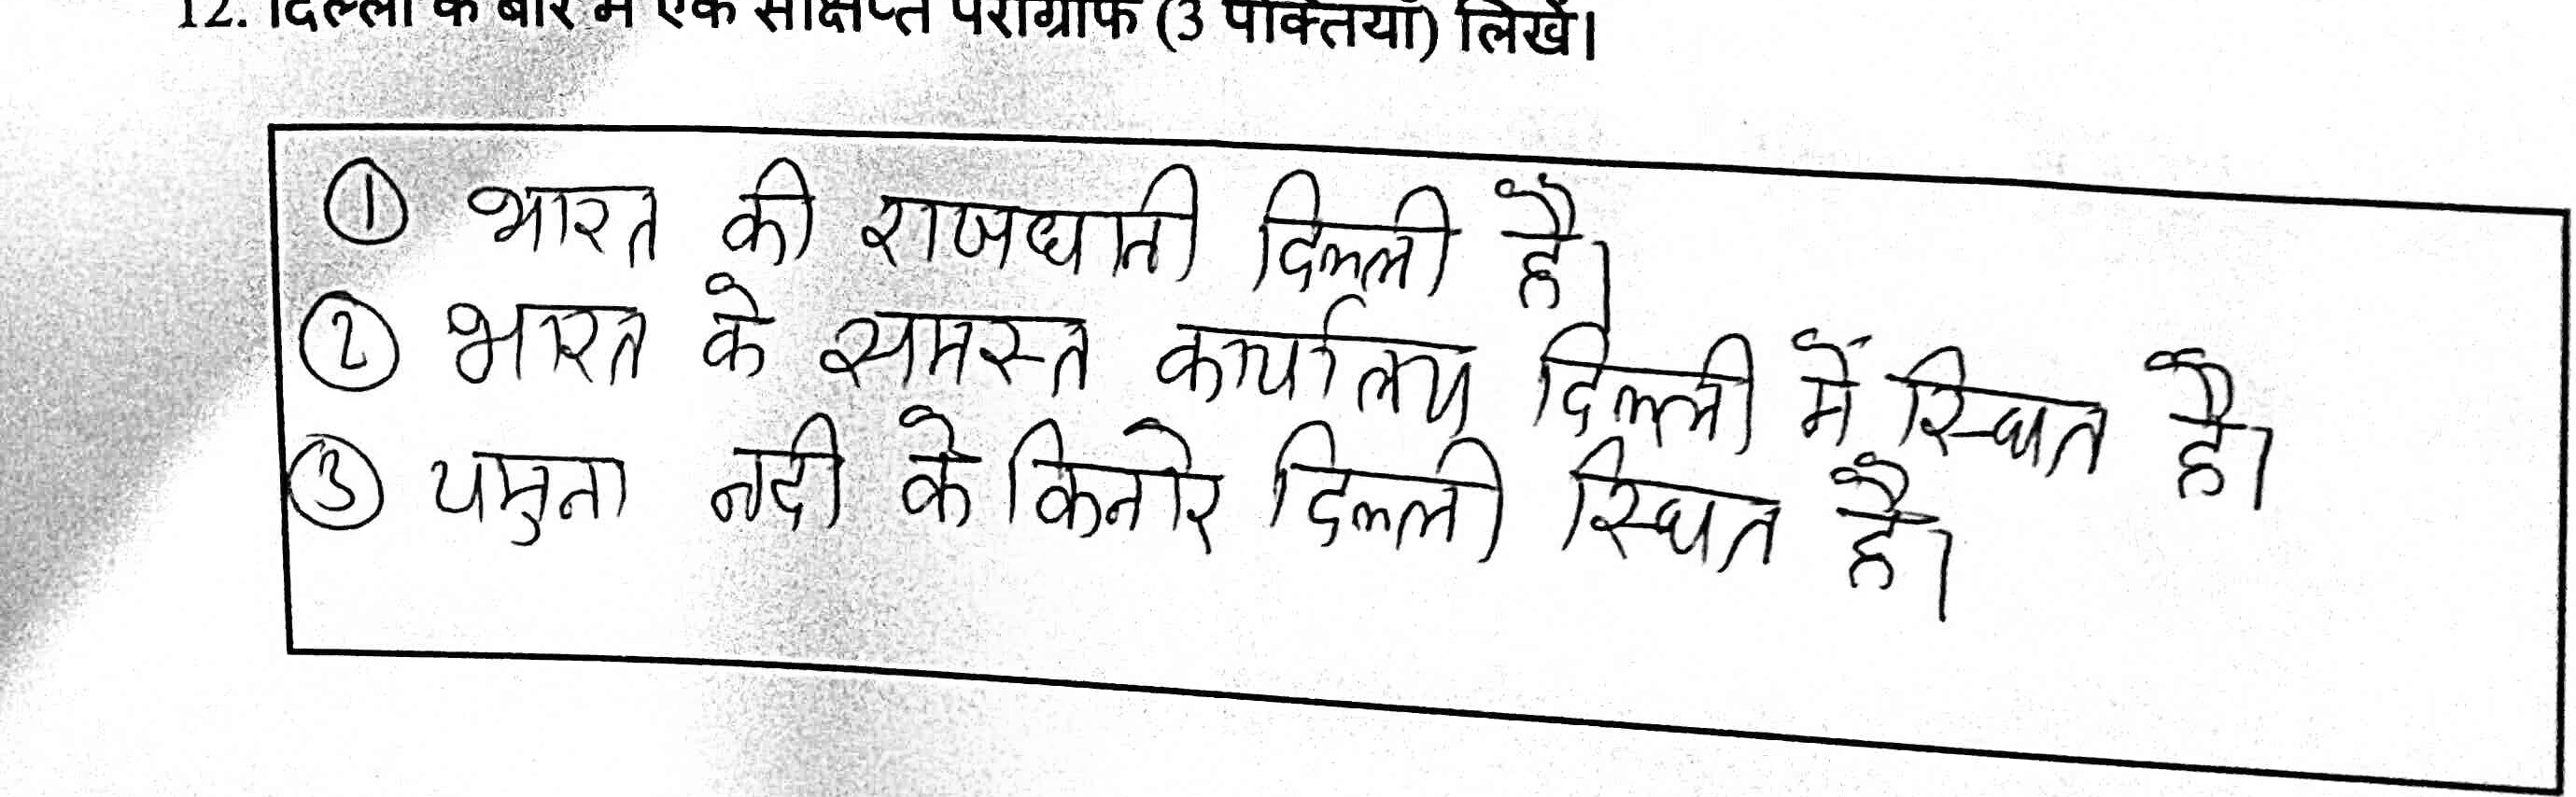 12. दिल्ली के बारे में एक संक्षिप्त पैराग्राफ (3 पंक्तियाँ) लिखें।
① भारत की राजधानी दिल्ली है।
② भारत के समस्त कार्यालय दिल्ली में स्थित है।
③ यमुना नदी के किनारे दिल्ली स्थित है।